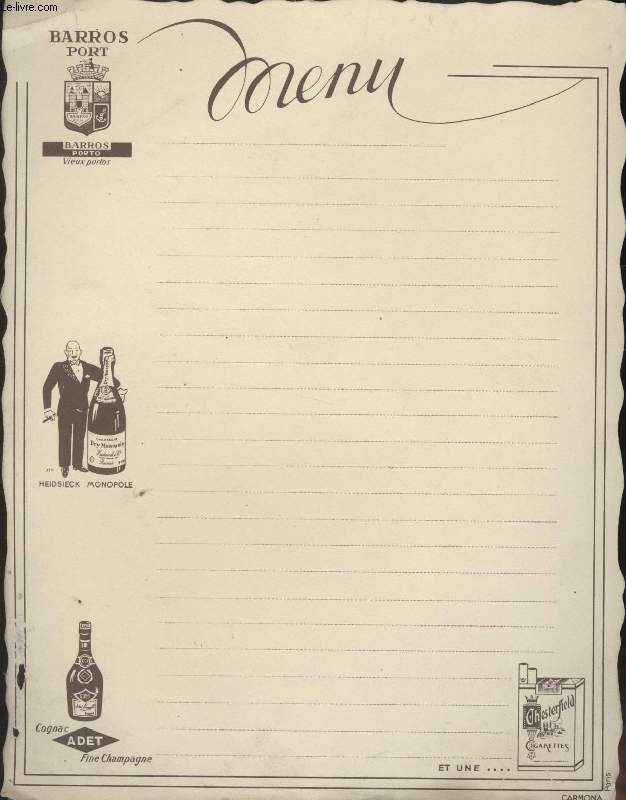 Le-livre.com
BARROS
PORT
Menu
BARROS
BARROS
PORTO
Vieux portos
CHAMPAGNE
Dry Monopole
HEIDSIECK MONOPOLE
Cognac
ADET
Fine Champagne
Chesterfield
CIGARETTES
ET UNE ....
CARMONA
Paris